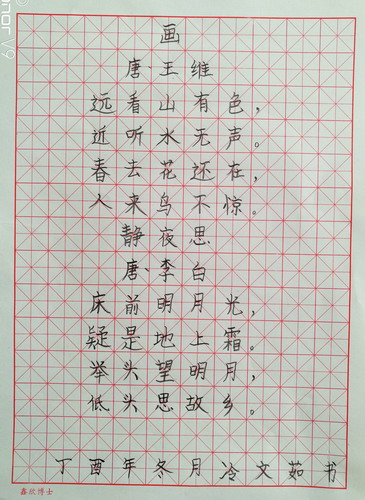 onor V9
画
唐·王维
远看山有色，
近听水无声。
春去花还在，
人来鸟不惊。
静夜思
唐·李白
床前明月光，
疑是地上霜。
举头望明月，
低头思故乡。
丁酉年冬月冷文茹书
鑫欣博士